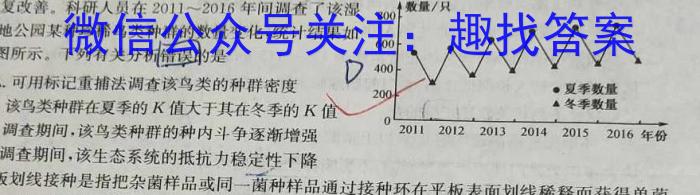 复改善。科研人员在2011~2016年间调查了该湿
地公园某种
鸟种群的数量变化,统计结果如
图所示。下列有关分析错误的是
D
.可用标记重捕法调查该鸟类的种群密度
该鸟类种群在夏季的K值大于其在冬季的K值
调查期间,该鸟类种群的种内斗争逐渐增强
调查期间,该生态系统的抵抗力稳定性下降
板划线接种是指把杂菌样品或同一菌种样品通过接种环在平板表面划线稀释而获得单菌
微信公众号关注:趣找答案
数量/只
800
600
400
200
0
●夏季数量
▲冬季数量
2011 2012 2013 2014 2015 2016 年份